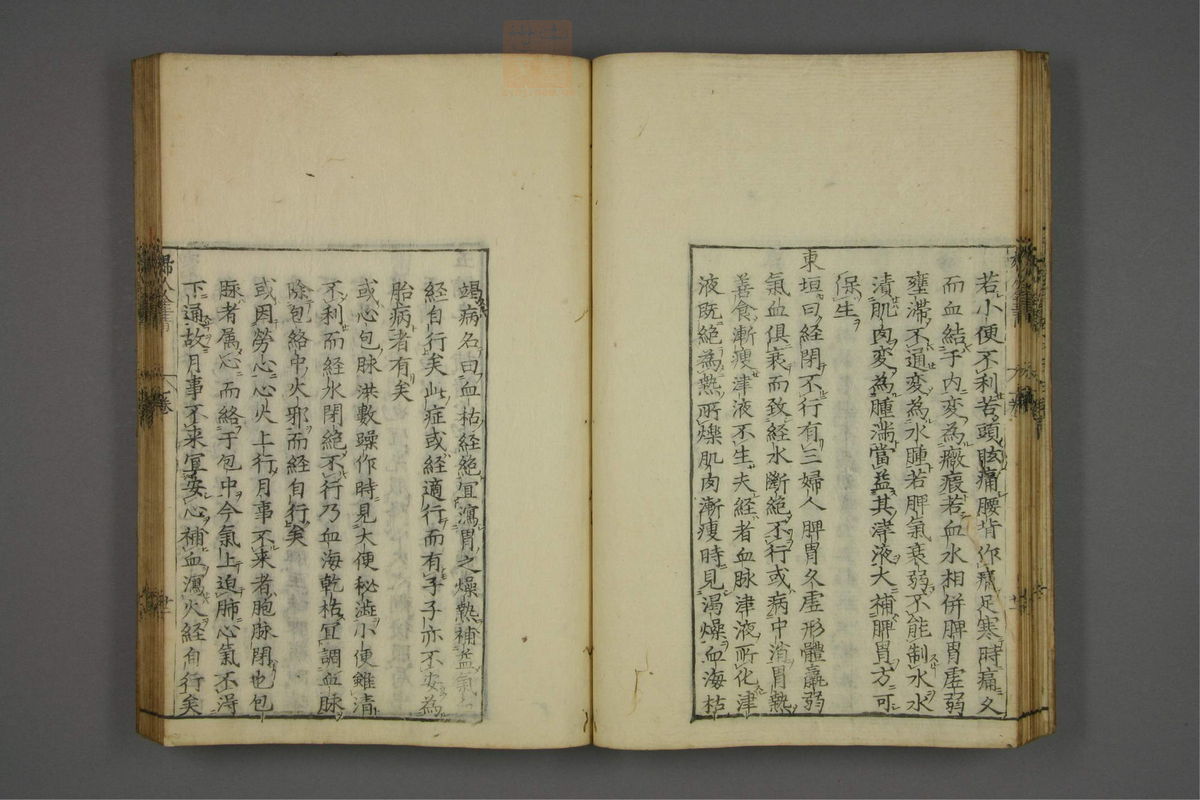 若小便不利苦頭眩痛腰背作痛足寒時痛久
而血結于内変為癥瘕若血水相併脾胃虚弱
壅滞不通変為水腫若脾氣衰弱不能制水水
漬肌肉変為腫満當益其津液大補脾胃方可
保生
東垣曰経閉不行有三婦人脾胃久虚形體羸弱
氣血俱衰而致経水斷絶不行或病中消胃熱
善食漸瘦津液不生夫経者血脉津液所化津
液既絶為熱所爍肌肉漸瘦時見渇燥血海枯
竭病名曰血枯経絶宜瀉胃之燥熱補益氣血
経自行矣此症或経適行而有子子亦不安為
胎病者有矣
或心包脉洪數躁作時見大便秘澁小便雖清
不利而経水閉絶不行乃血海乾枯宜調血脉
除包絡中火邪而経自行矣
或因勞心心火上行月事不来者胞脉閉也包
脉者属心而絡于包中今氣上迫肺心氣不得
下通故月事不来宜安心補血瀉火経自行矣